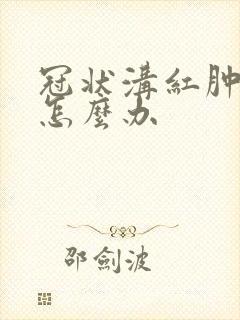 冠状溝紅肿
怎麼办
邵劍波